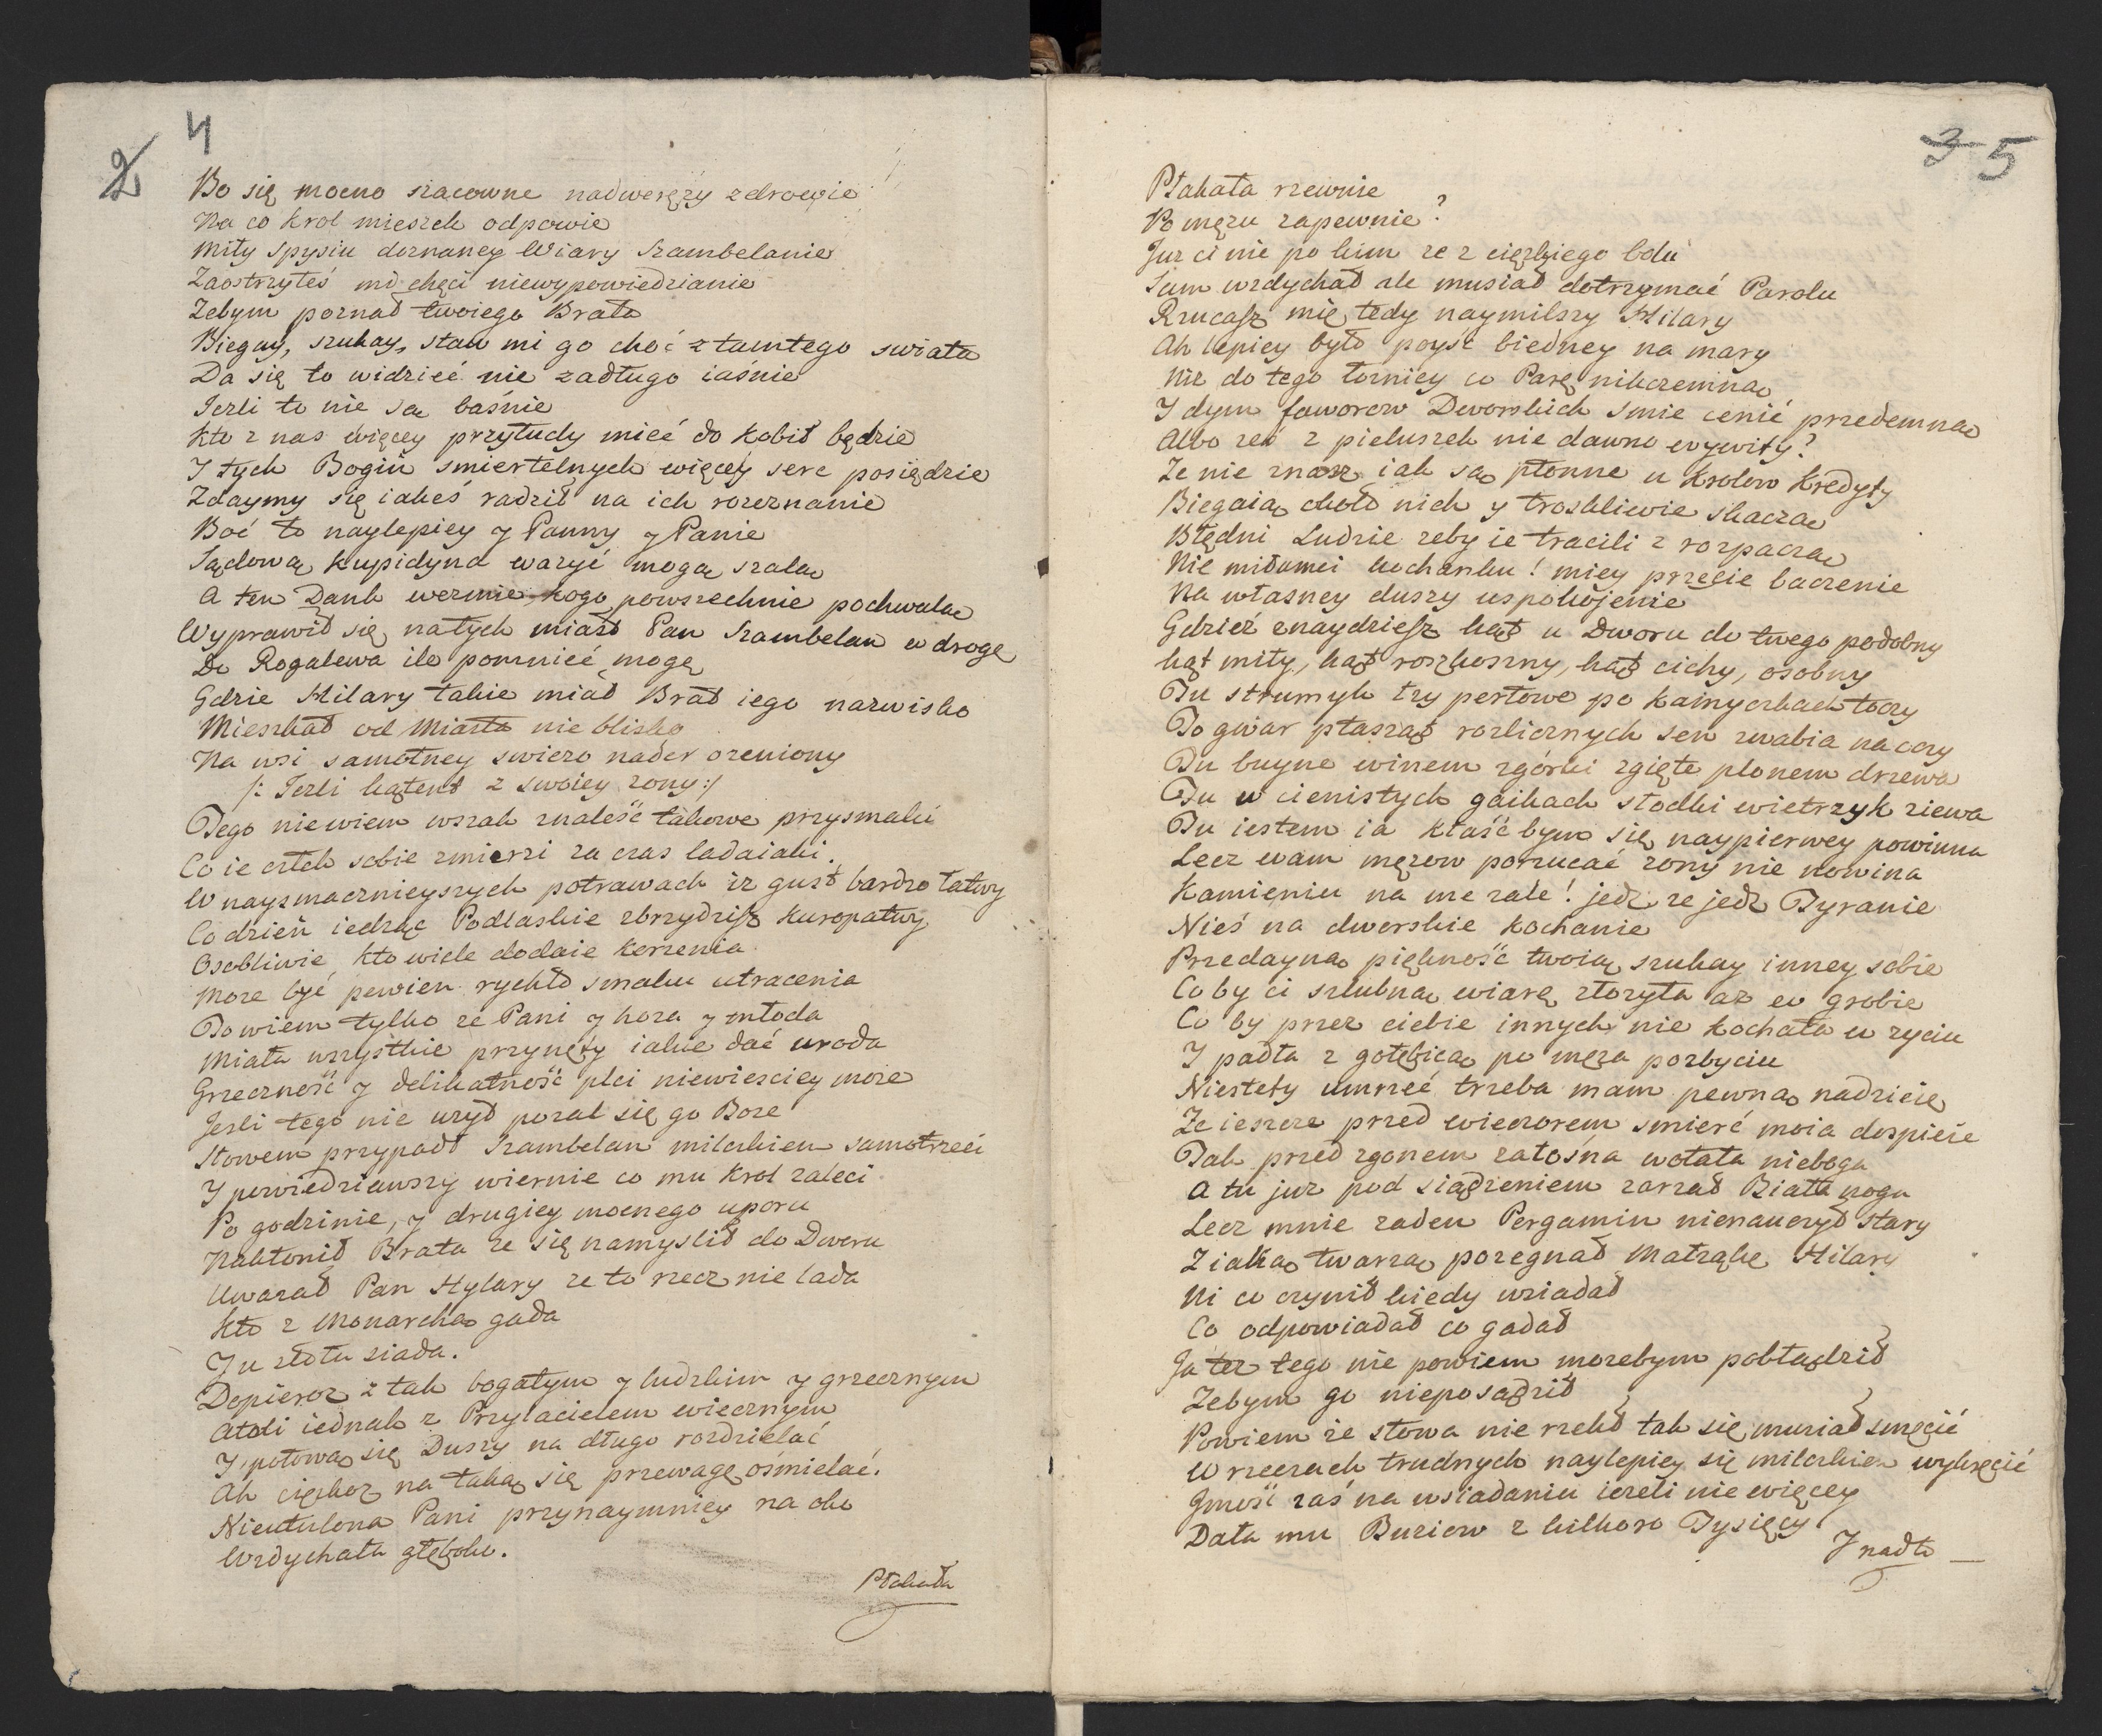 4
2
Bo się mocno szacowne nadweręży zdrowie
Na co Krol mieszek odpowie
Miły Spysiu doznaney Wiary Szambelanie
Zaostrzyłeś mi chęci niewypowiedzianie
Zebym poznał twoiego Brata
Biegay, szukay, staw mi go choć z tamtego swiata
Da się to widzieć nie zadługo iaśnie
Jezli to nie są baśnie
Kto z nas więcey przyłudy mieć do Kobit będzie
I tych Bogiń smiertelnych więcey serc posiędzie
Zdaymy się iakeś radził na ich rozeznanie
Boć to naylepiey y Panny y Panie
Sądową Kupidyna ważyć mogą szalą
A ten Dank wezmie kogo powszechnie pochwalą
Wyprawił się natych miast Pan Szambelan w drogę
Do Rogalewa ile pomnieć mogę
Gdzie Hilary takie miał Brat iego nazwisko
Mieszkał od Miasta nie blisko
Na wsi samotney swiezo nader ozeniony
/: Jezli kątent z swoiey zony :/
Tego niewiem wszak znaleść takowe przysmaki
Co ie człek sobie zmierzi za czas ladaiaki.
W naysmacznieyszych potrawach iz gust bardzo łatwy
Co dzień iedząc Podlaskie zbrzydzisz Kuropatwy
Osobliwie kto wiele dodaie Korzenia
Moze być pewien rychło smaku utracenia
To wiem tylko ze Pani y hoza y młoda
Miała wszystkie przynęty iakie dać uroda
Grzeczność y delikatność płci niewiesciey moze
Jezli tego nie uzył pozal się go Boze
Słowem przypadł Szambelan milczkiem samotrzeci
I powiedziawszy wiernie co mu Krol zaleci
Po godzinie, y drugiey mocnego uporu
Nakłonił Brata ze się namyslił do Dworu
Uwazał Pan Hylary ze to rzecz nie lada
Kto z Monarchą gada
I u złotu siada.
Dopieroz z tak bogatym y ludzkim y grzecznym
Atoli iednak z Przyiacielem wiecznym
I połową się Duszy na długo rozdzielać
Ah ciężkoz na taką się przewagę osmielać.
Nieutulona Pani przynaymniey na oko
Wzdychała głęboko.
Płakała
3 5
Płakała rzewnie
Po męzu zapewnie?
Juz ci nie po kim ze z cięzkiego bolu
Sam wzdychał ale musiał dotrzymać Parolu
Rzucasz mię tedy naymilszy Hilary
Ah lepiey było poyść biedney na mary
Niz do tego co Parę nikczemną
I dym faworow Dworskich smie cenić przedemną
Albo ześ z pieluszek nie dawno wywity?
Ze nie znasz iak są płonne u Krolow Kredyty
Biegaią około nich y troskliwie skaczą
Błędni Ludzie zeby ie tracili z rozpaczą
Nie miłamci kochanku! miey przecie baczenie
Na własney duszy uspokojenie
Gdzieź znaydziesz kąt u Dworu do twego podobny
kąt miły, kąt roszkoszny, kąt cichy, osobny
Tu strumyk łzy perłowe po Kamyczkach toczy
To gwar ptasząt rozlicznych sen zwabia na oczy
Tu buyne winem zgórki zgięte plonem drzewa
Tu w cienistych gaikach słodki wietrzyk ziewa
Tu iestem ia Kłaść bym się naypierwey powinna
Lecz wam męzow porzucać zony nie nowina
Kamieniu na me zale! jedz ze jedz Tyranie
Nieś na dworskie Kochanie
Przedayną piękność twoią szukay inney sobie
Co by ci szlubną wiarę złozyła az w grobie
Co by przez ciebie innych nie Kochała w zyciu
I padła z gołębicą po męza pozbyciu
Niestety umrzeć trzeba mam pewną nadzieię
Ze ieszcze przed wieczorem smierć moia dospieie
Tak przed zgonem załośna wołała nieboga
A tu juz pod siądzeniem zarzał Białonoga
Lecz mnie zaden Pergamin nienauczył stary
Z iaką twarzą pozegnał Małząkę Hilary
Ni co czynił kiedy wsiadał
Co odpowiadał co gadał
Ja tez tego nie powiem mozebym pobłądził
Zebym go nieposądził
Powiem ze słowa nie rzekł tak się musiał smęcić
W rzeczach trudnych naylepiey się milczkiem wykręcić
Jmość zaś na wsiadaniu iezeli nie więcey
Dała mu Buziow z kilkoro Tysięcy
I nadto